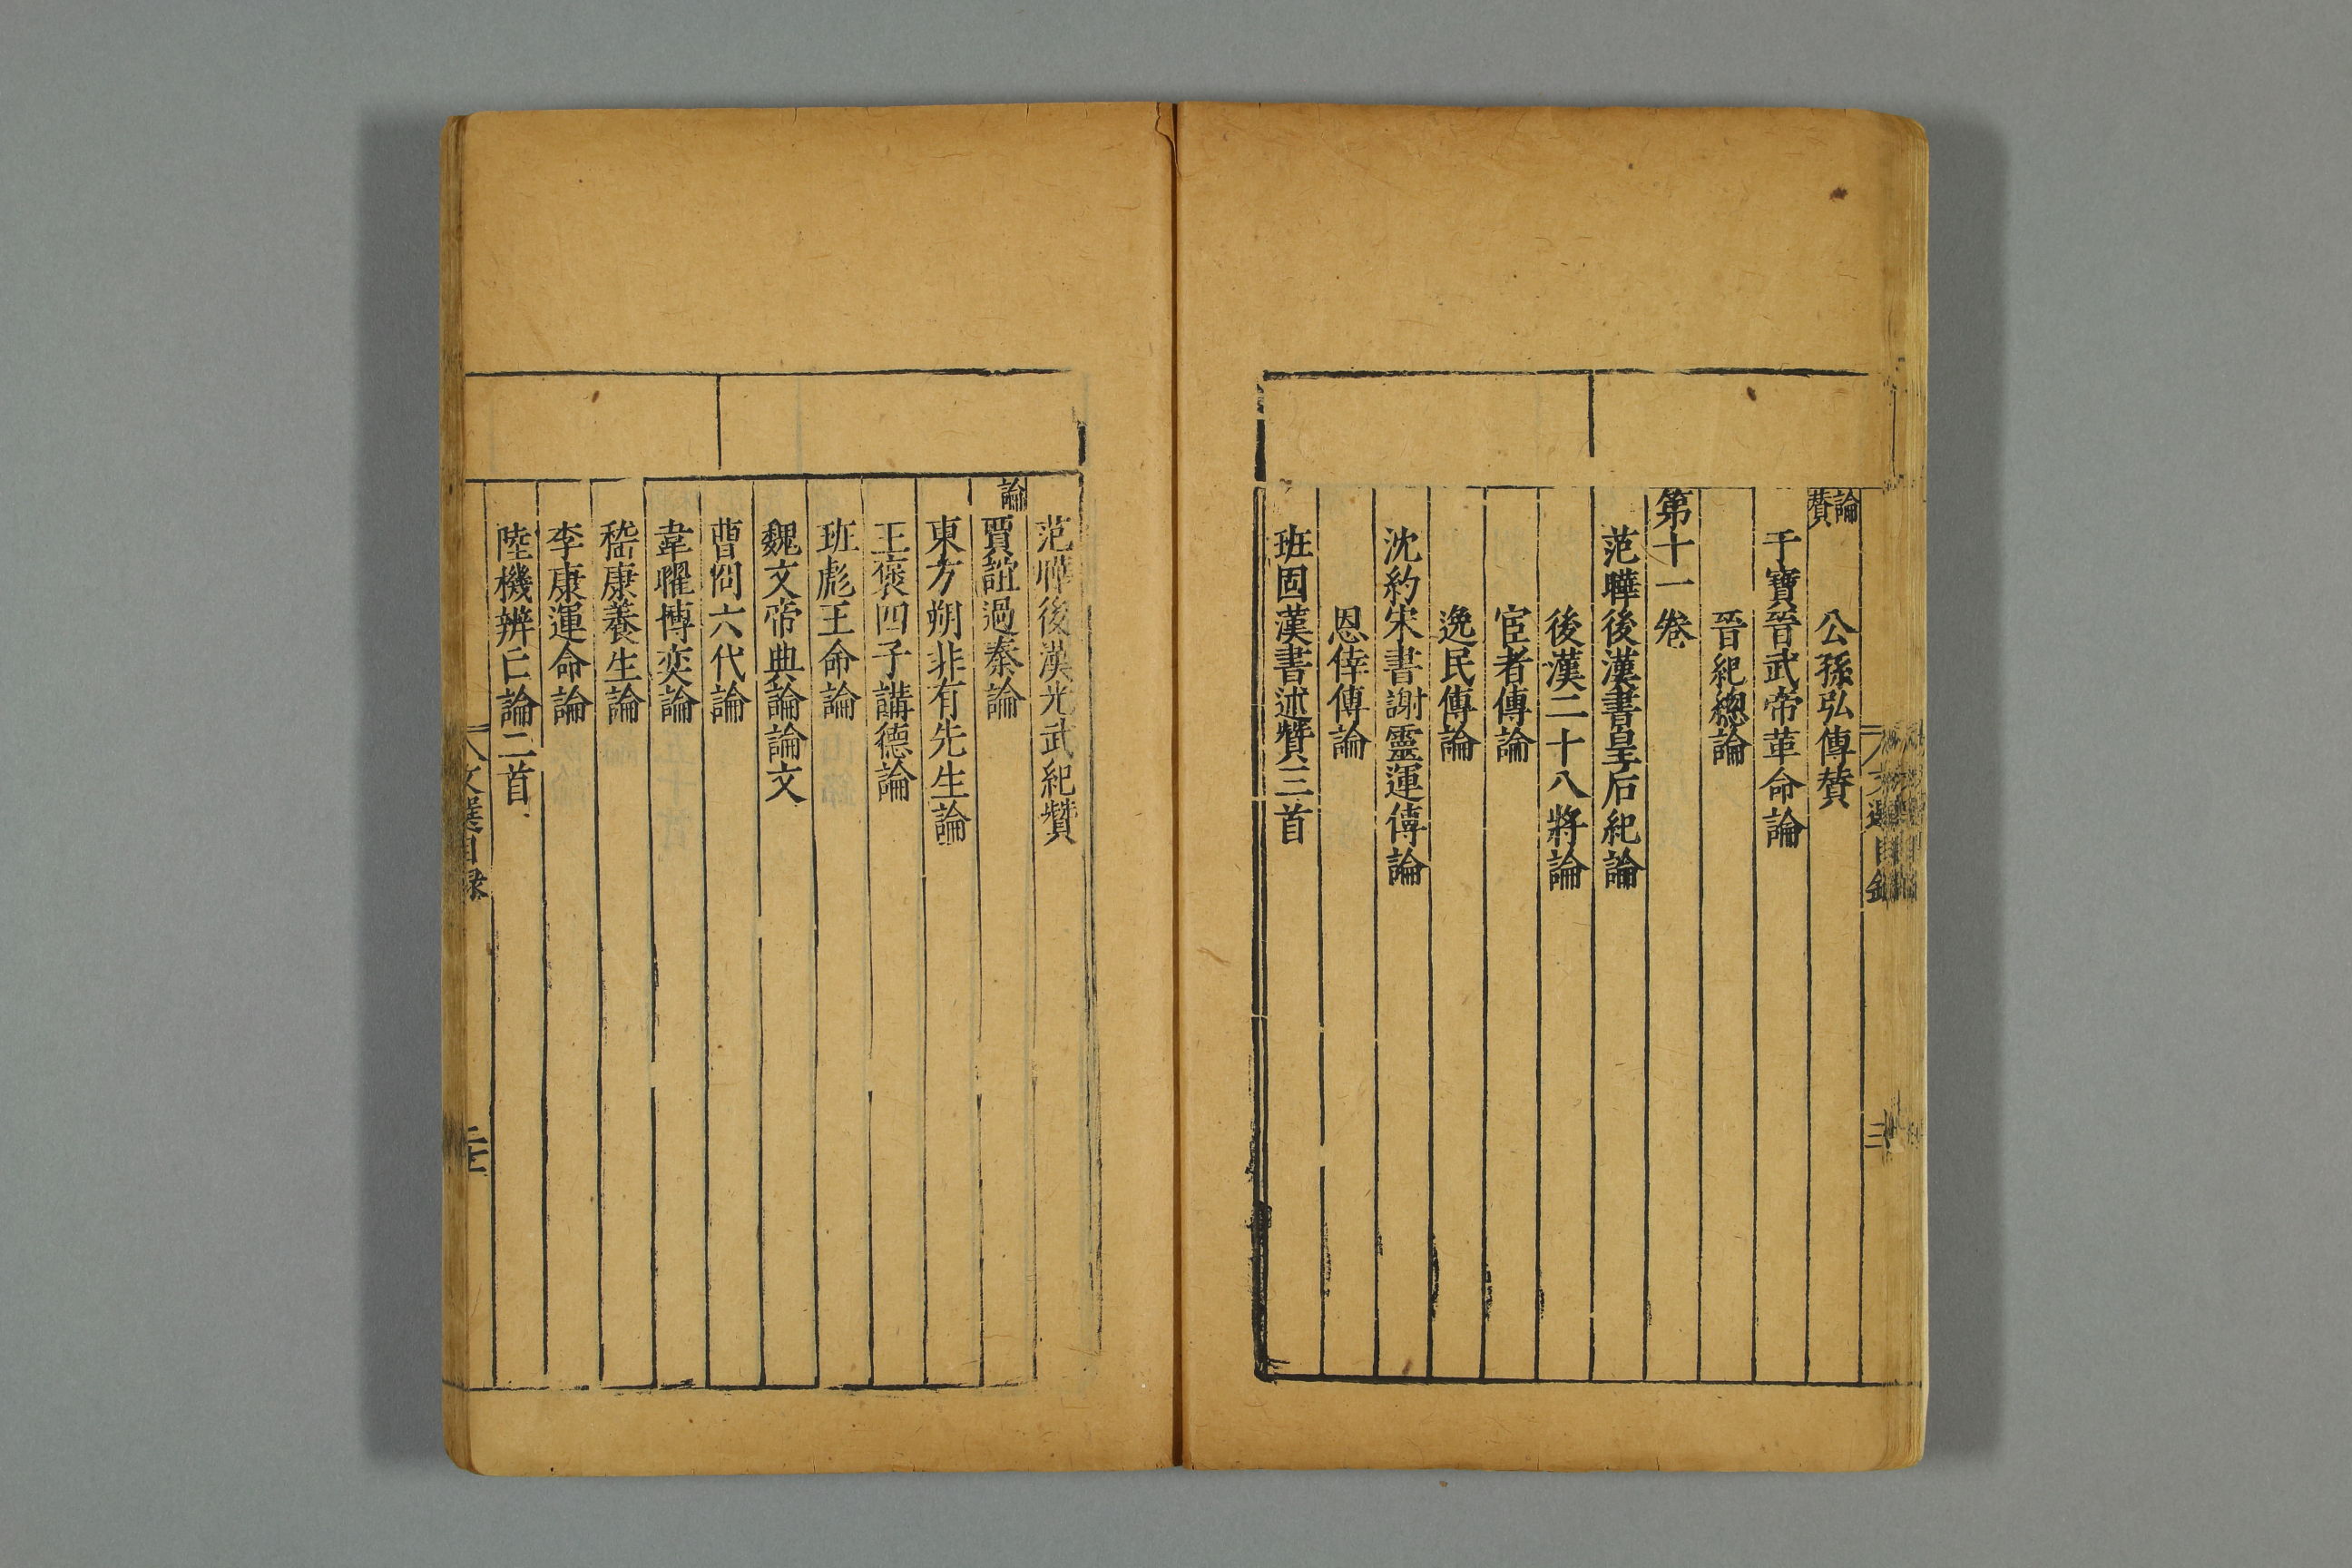 文選目錄 三
論賛 公孫弘傳賛
干寶晉武帝革命論
晉紀總論
第十一卷
范曄後漢書皇后紀論
後漢二十八將論
宦者傳論
逸民傳論
沈約宋書謝靈運傳論
恩倖傳論
班固漢書述贊三首
范曄後漢光武紀贊
論 賈誼過秦論
東方朔非有先生論
王褒四子講德論
班彪王命論
魏文帝典論論文
曹冏六代論
韋曜博奕論
嵇康養生論
李康運命論
陸機辨亡論二首
文選目録